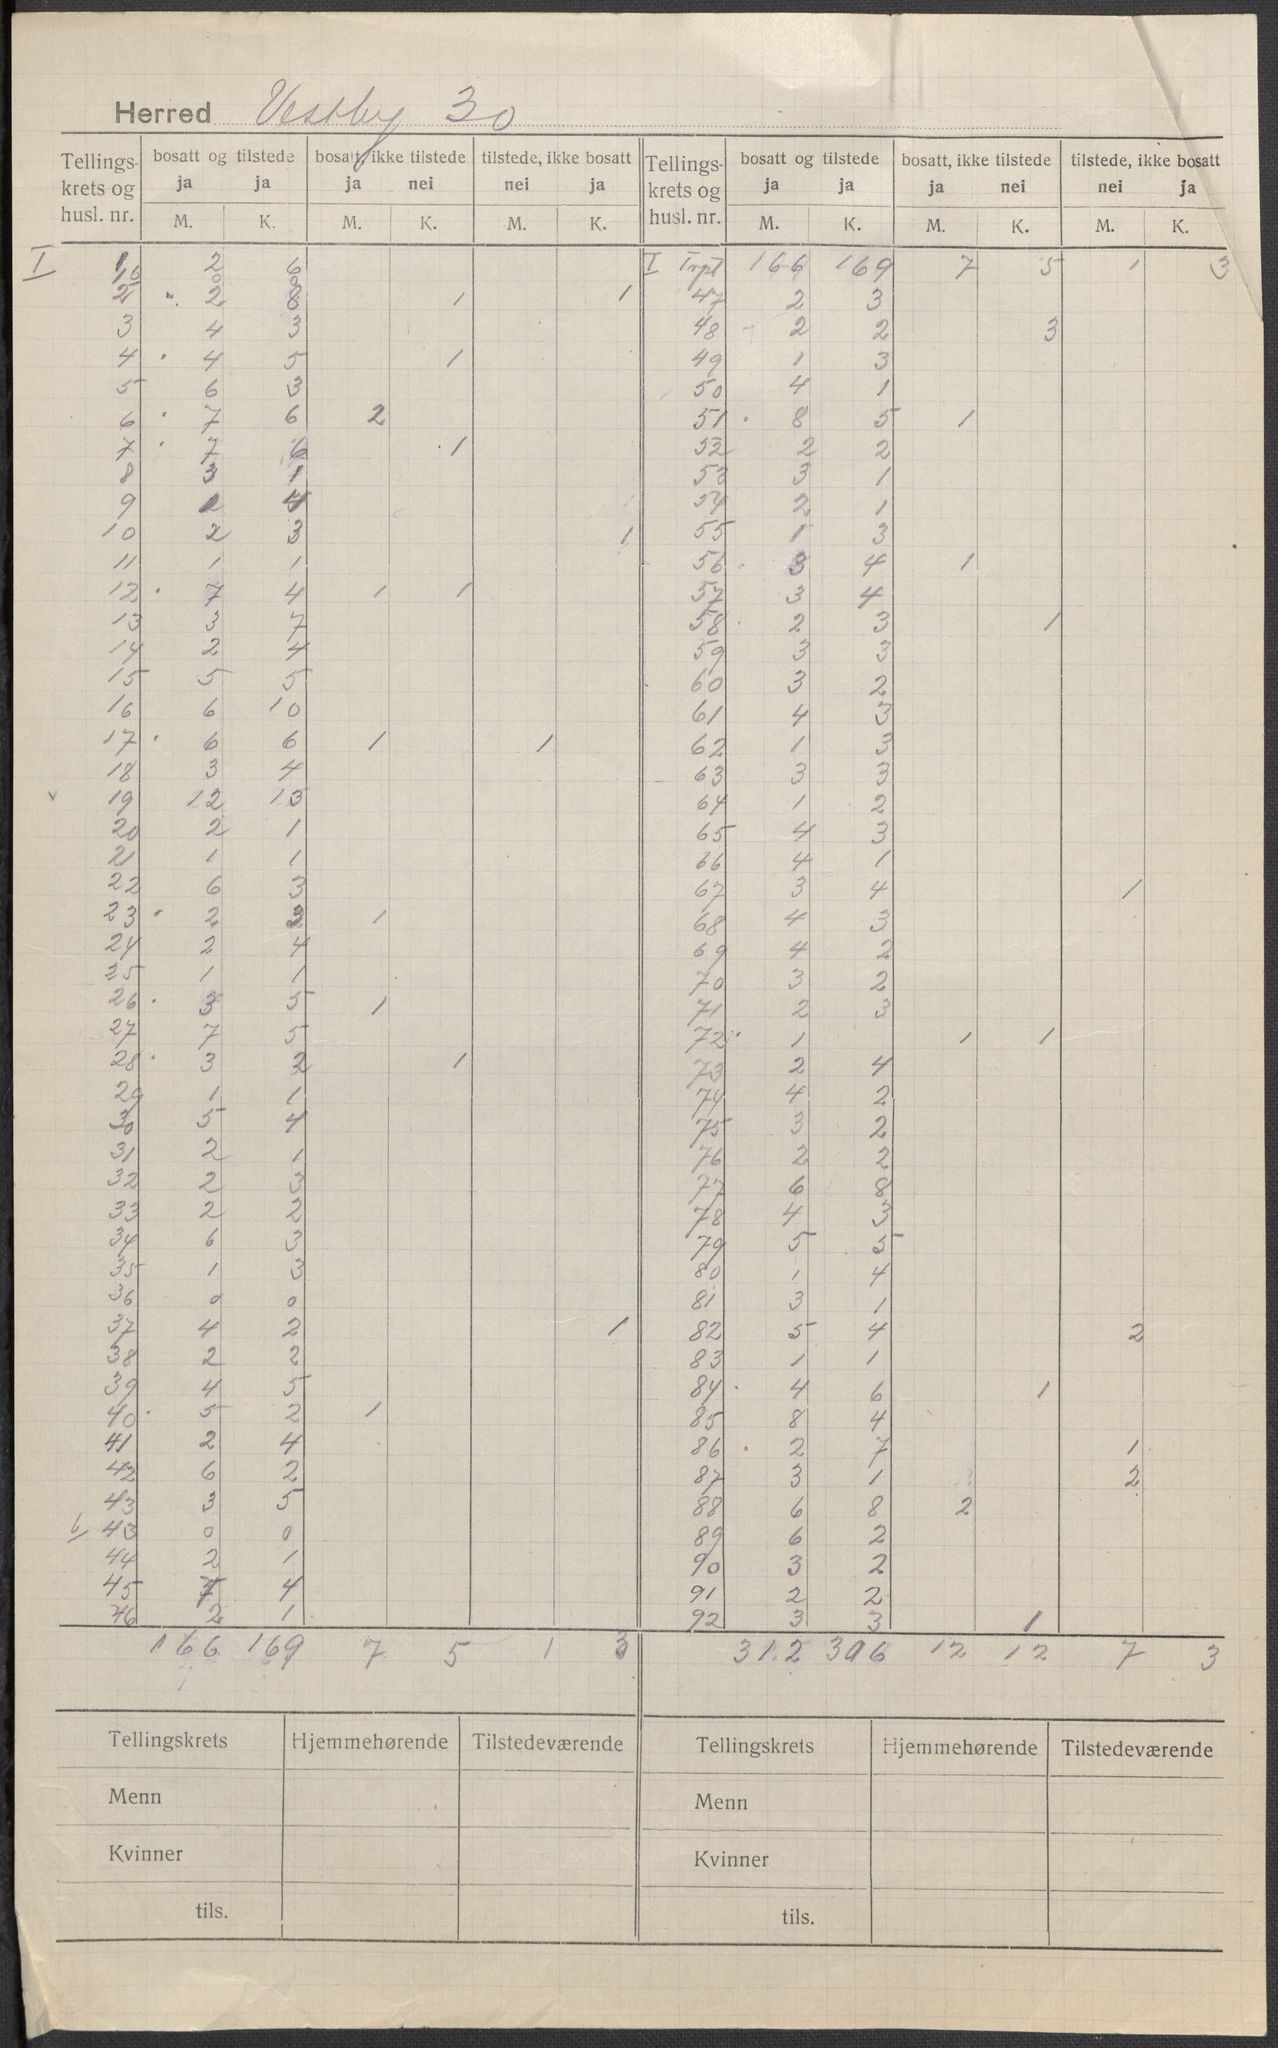 Herred Vestby 30
Tellings- krets og husl. nr. | bosatt og tilstede ja ja M. K. | bosatt, ikke tilstede ja nei M. K. | tilstede, ikke bosatt nei ja M. K. | Tellings- krets og husl. nr. | bosatt og tilstede ja ja M. K. | bosatt, ikke tilstede ja nei M. K. | tilstede, ikke bosatt nei ja M. K.
I 1 2 6 | I Trpt 166 169 7 5 1 3
2 2 8 1 1 | 47 2 3
3 4 3 | 48 2 2 3
4 4 5 1 | 49 1 3
5 6 3 | 50 4 1
6 7 6 2 | 51 8 5 1
7 7 6 1 | 52 2 2
8 3 1 | 53 3 1
9 1 4 | 54 2 1
10 2 3 1 | 55 1 3
11 1 1 | 56 3 4 1
12 7 4 1 1 | 57 3 4
13 3 7 | 58 2 3 1
14 2 4 | 59 3 3
15 5 5 | 60 3 2
16 6 10 | 61 4 3
17 6 6 1 1 | 62 1 3
18 3 4 | 63 3 3
19 12 13 | 64 1 2
20 2 1 | 65 4 3
21 1 1 | 66 4 1
22 6 3 | 67 3 4 1
23 2 2 1 | 68 4 3
24 2 4 | 69 4 2
25 1 1 | 70 3 2
26 3 5 1 | 71 2 3
27 7 5 | 72 1 1 1
28 3 2 1 | 73 2 4
29 1 1 | 74 4 2
30 5 4 | 75 3 2
31 2 1 | 76 2 2
32 2 3 | 77 6 8
33 2 2 | 78 4 3
34 6 3 | 79 5 5
35 1 3 | 80 1 4
36 0 0 | 81 3 1
37 4 2 1 | 82 5 4 2
38 2 2 | 83 1 1
39 4 5 | 84 4 6 1
40 5 2 1 | 85 8 4
41 2 4 | 86 2 7 1
42 6 2 | 87 3 1 2
43 3 5 | 88 6 8 2
b/ 43 0 0 | 89 6 2
44 2 1 | 90 3 2
45 4 | 91 2 2
46 2 1 | 92 3 3 1
166 169 7 5 1 3 | 312 306 12 12 7 3
Tellingskrets | Hjemmehørende | Tilstedeværende | Tellingskrets | Hjemmehørende | Tilstedeværende
Menn | Menn
Kvinner | Kvinner
tils. | tils.